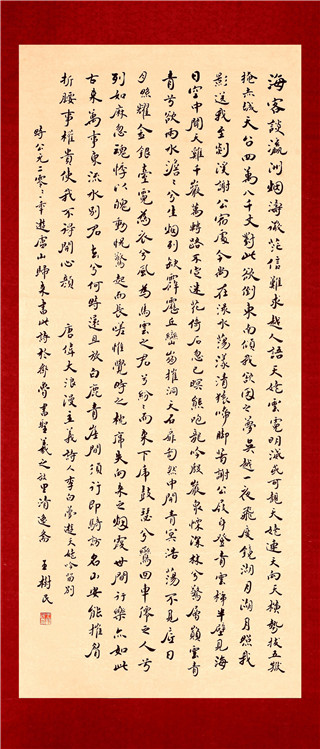 海客談瀛洲烟濤微茫信難求越人語天姥雲霓明滅或可覩天姥連天向天橫勢拔五嶽
掩赤城天台四萬八千丈對此欲倒東南傾我欲因之夢吳越一夜飛度鏡湖月湖月照我
影送我至剡溪謝公宿處今尚在渌水蕩漾清猿啼脚著謝公屐身登青雲梯半壁見海
日空中聞天雞千巖萬轉路不定迷花倚石忽已暝熊咆龍吟殷巖泉慄深林兮驚層巔雲青
青兮欲雨水澹澹兮生烟列缺霹靂丘巒崩摧洞天石扉訇然中開青冥浩蕩不見底日
月照耀金銀臺霓為衣兮風為馬雲之君兮紛紛而來下虎鼓瑟兮鸞回車仙之人兮
列如麻忽魂悸以魄動怳驚起而長嗟惟覺時之枕席失向來之烟霞世間行樂亦如此
古來萬事東流水別君去兮何時還且放白鹿青崖間須行即騎訪名山安能摧眉
折腰事權貴使我不得開心顏 唐偉大浪漫主義詩人李白夢遊天姥吟留別
時公元二零年遊廬山歸來書此詩於齊魯書聖羲之故里清逸齋 王樹民